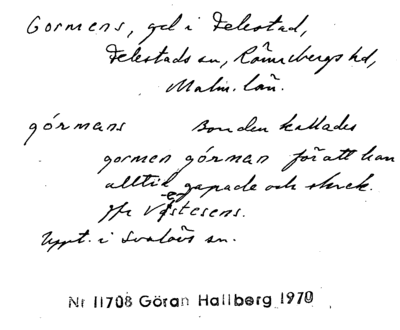 Gormens, gd i Felestad,
Felestads sn, Rönnebergs hd,
Malm. län.
górmans Bonden kallades
gormen górman för att han
alltid gapade och skrek.
Jfr Västesens.
Uppt. i Svalövs sn.
Nr 11708 Göran Hallberg 1970